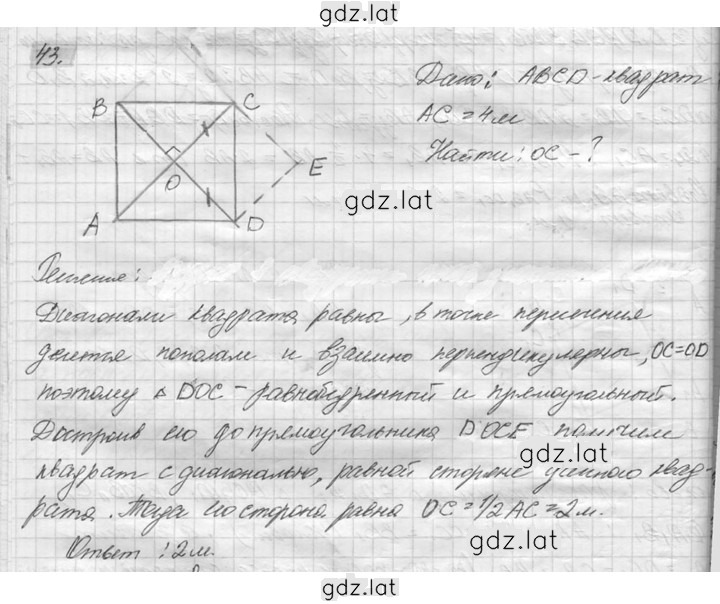 gdz.lat
43.
B C
O E
A D
Дано: ABCD - квадрат
AC = 4м
Найти: OC - ?
gdz.lat
Решение:
Диагонали квадрата равны, в точке пересечения
делятся пополам и взаимно перпендикулярны, OC=OD
поэтому △ DOC - равнобедренный и прямоугольный.
Достроив его до прямоугольника DOCE получим
квадрат с диагональю, равной стороне данного квад-
рата. Тогда его сторона равна OC = 1/2 AC = 2м.
gdz.lat
gdz.lat
Ответ: 2м.
gdz.lat